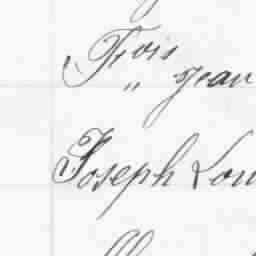 Frois
" Jean
Joseph Lou